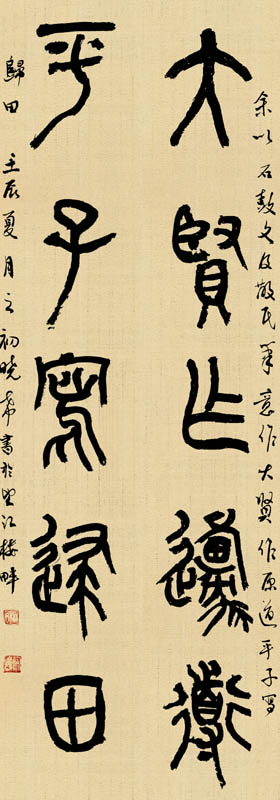 余以石鼓文及散氏笔意作大贤作原道平子写
大賢作邍衜
平子寫歸田
歸田 壬辰夏月之初晓希書於望江楼畔